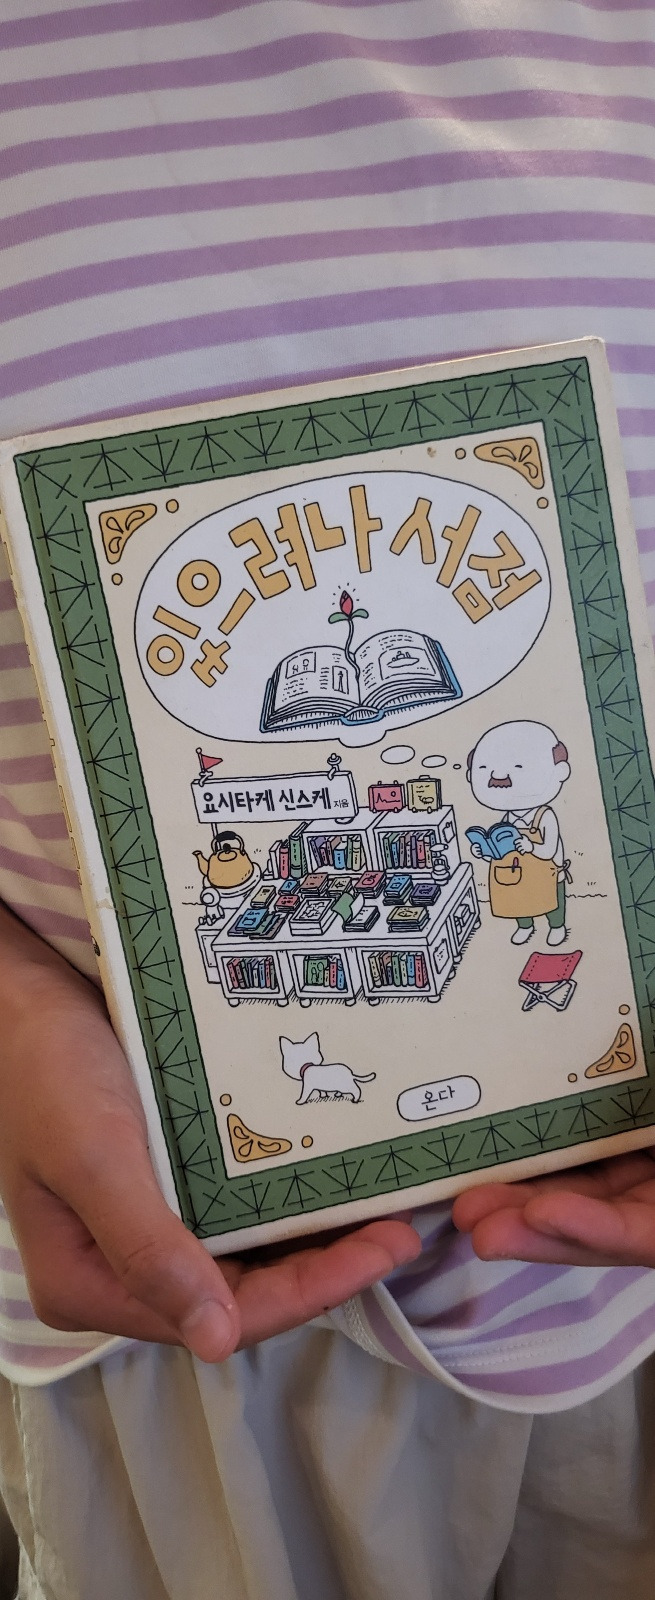 있으려나 서점
요시타케 신스케 지음
온다